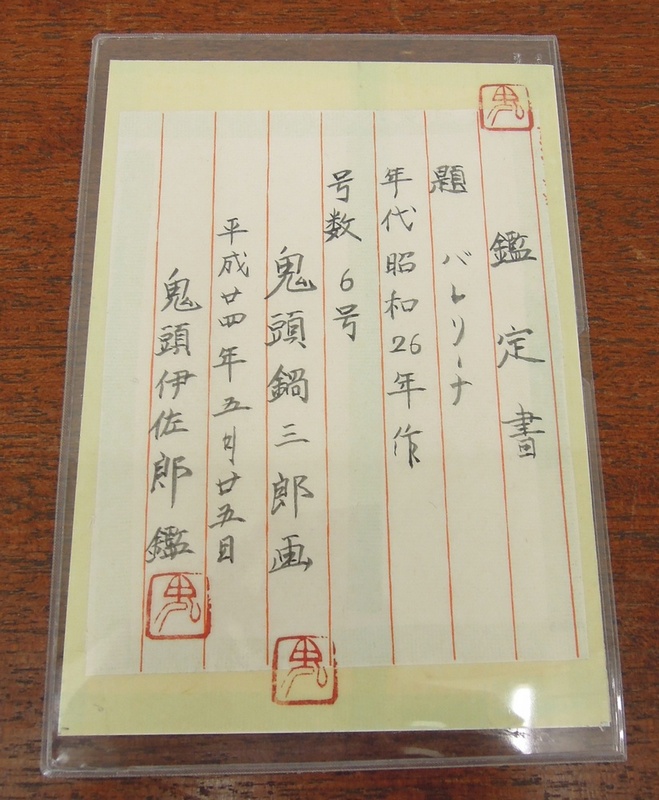 鑑定書
題 バレリーナ
年代昭和26年作
号数 6号
鬼頭鍋三郎画
平成廿四年五月廿五日
鬼頭伊佐郎鑑